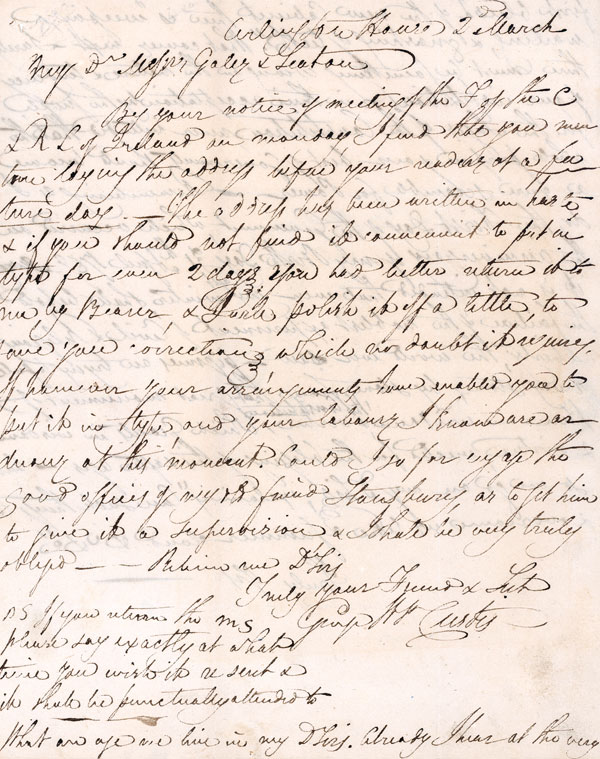 Arlington House 2 March
My Dr Messrs Gales & Seaton
By your notice of meeting of the F of the C
& R L of Ireland on monday, I find that you men
tion laying the address before your readers at a fu
ture day. — The address has been written in haste
& if you should not find it convenient to put in
type for even 2 days you had better return it to
me by Bearer, & I will polish it off a little, to
save your correction, which no doubt it requires.
If however your arrangements have enabled you to
put it in type and your labours I know are ar
duous at this moment. Could I so far engage the
good offices of my old friend Stansbury as to get him
to give it a supervision & I shall be very truly
obliged — — Believe me Dr Sirs
Truly your Friend & Svt
Geo W P Custis
PS If you return the MS
please say exactly at what
time you wish it re sent &
it shall be punctually attended to
What an age we live in my Dr Sirs. Already I hear at the very